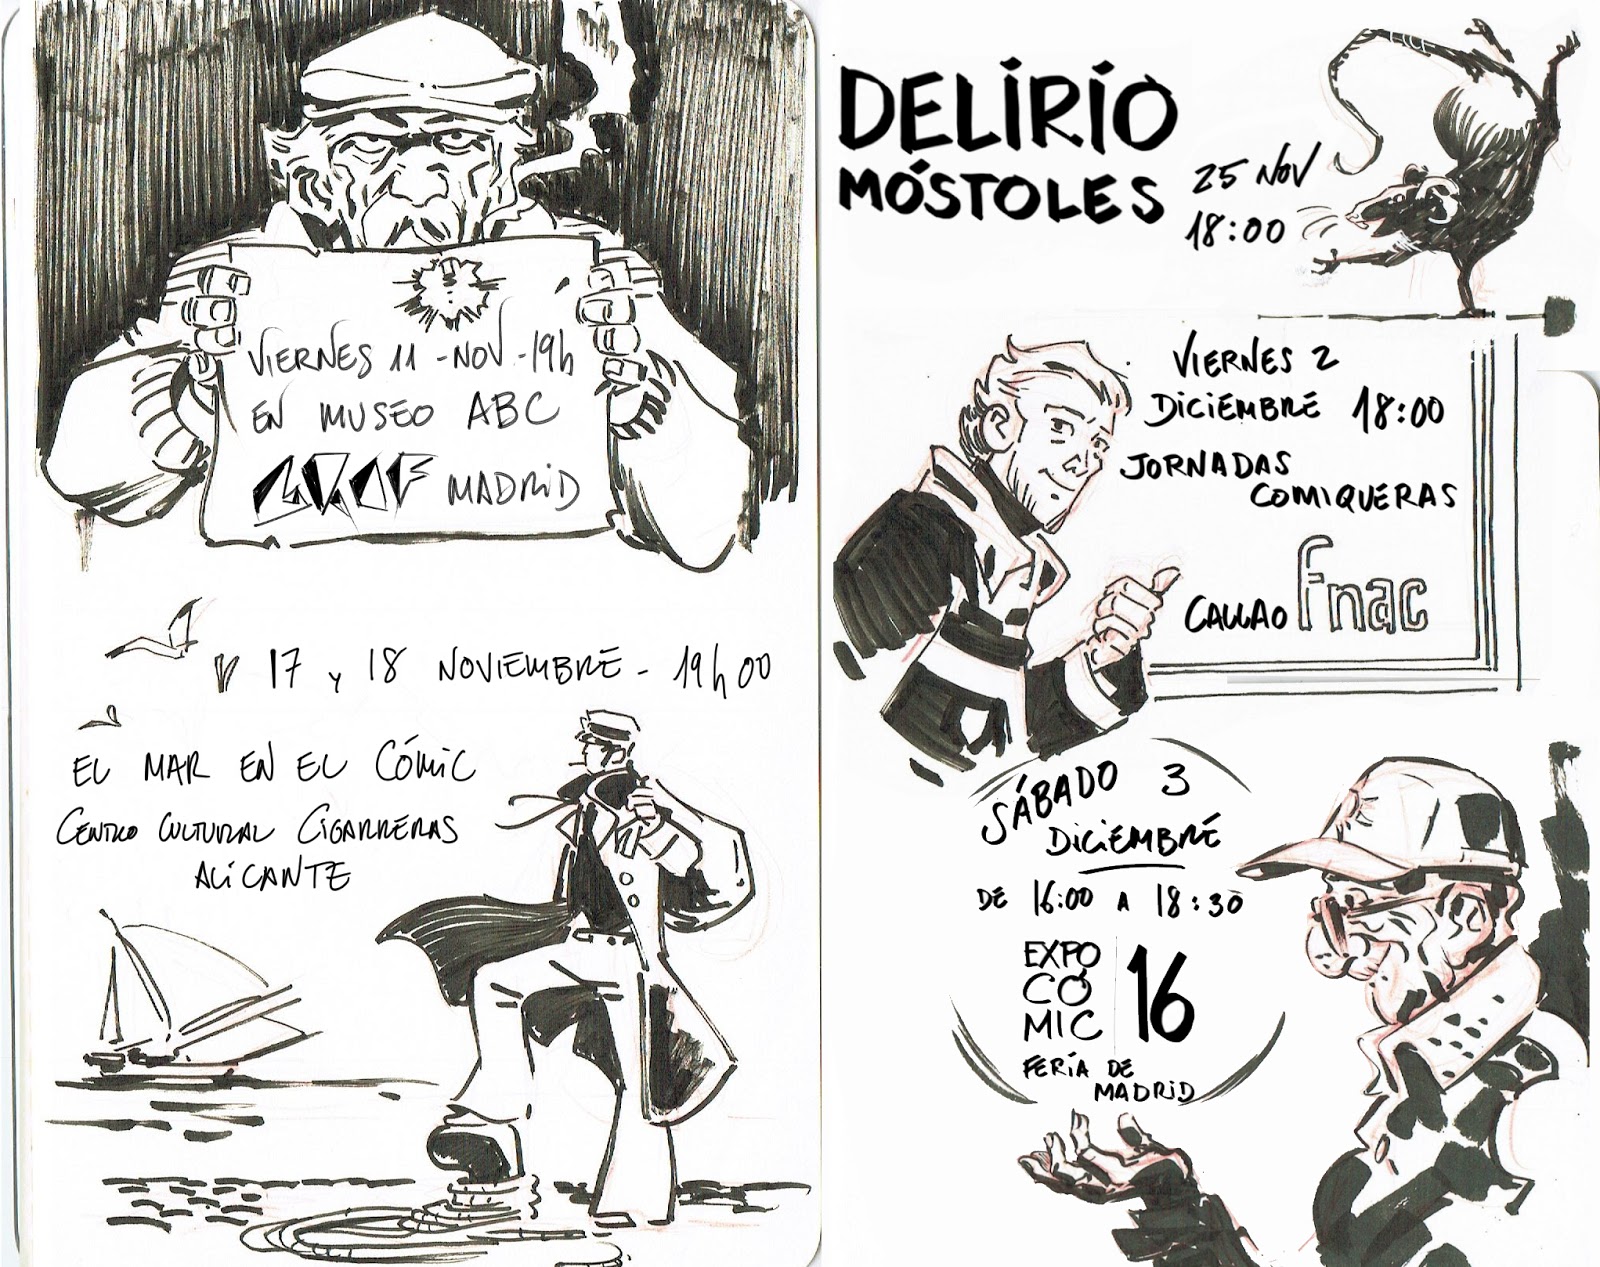 VIERNES 11 - NOV - 19h
EN MUSEO ABC
GRAF MADRID
17 y 18 NOVIEMBRE - 19h00
EL MAR EN EL CÓMIC
CENTRO CULTURAL CIGARRERAS
ALICANTE
DELIRIO
MÓSTOLES
25 NOV
18:00
VIERNES 2
DICIEMBRE 18:00
JORNADAS
COMIQUERAS
CALLAO fnac
SÁBADO 3
DICIEMBRE
DE 16:00 A 18:30
EXPO
CO
MIC
16
FERÍA DE
MADRID